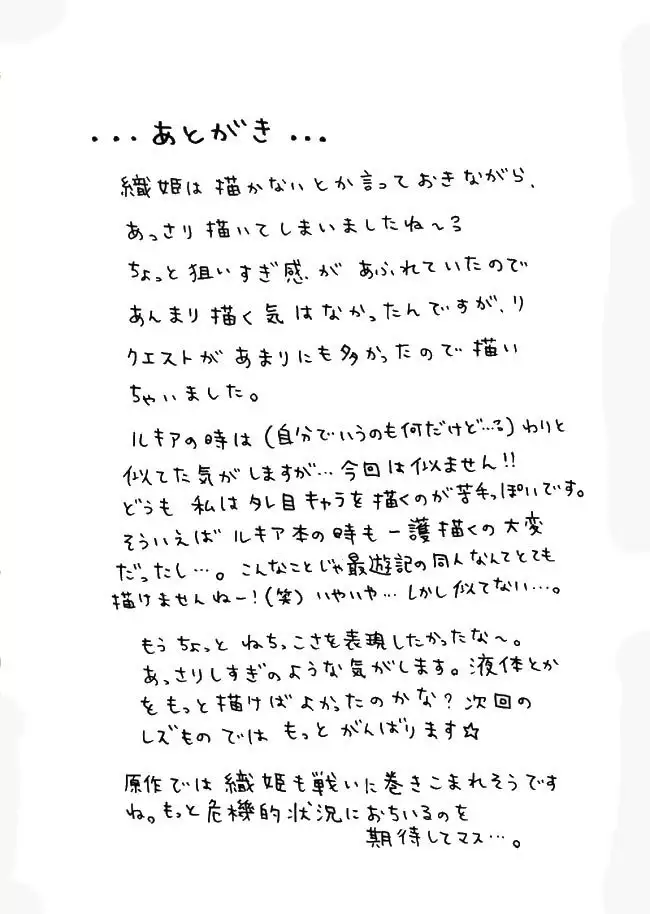 ...あとがき...
織姫は描かないとか言っておきながら、
あっさり描いてしまいましたね〜る
ちょっと狙いすぎ感があふれていたので
あんまり描く気はなかったんですが、リ
クエストがあまりにも多かったので描い
ちゃいました。
ルキアの時は(自分でいうのも何だけど…る)わりと
似てた気がしますが…今回は似ません!!
どうも私はタレ目キャラを描くのが苦手っぽいです。
そういえばルキア本の時も一護描くの大変
だったし…。こんなことじゃ最遊記の同人なんてとても
描けませんねー!(笑)いやいや…しかし似てない…。
もうちょっとねちっこさを表現したかったな〜。
あっさりしすぎのような気がします。液体とか
をもっと描けばよかったのかな?次回の
レズものではもっとがんばります☆
原作では織姫も戦いに巻きこまれそうです
ね。もっと危機的状況におちいるのを
期待してマス…。